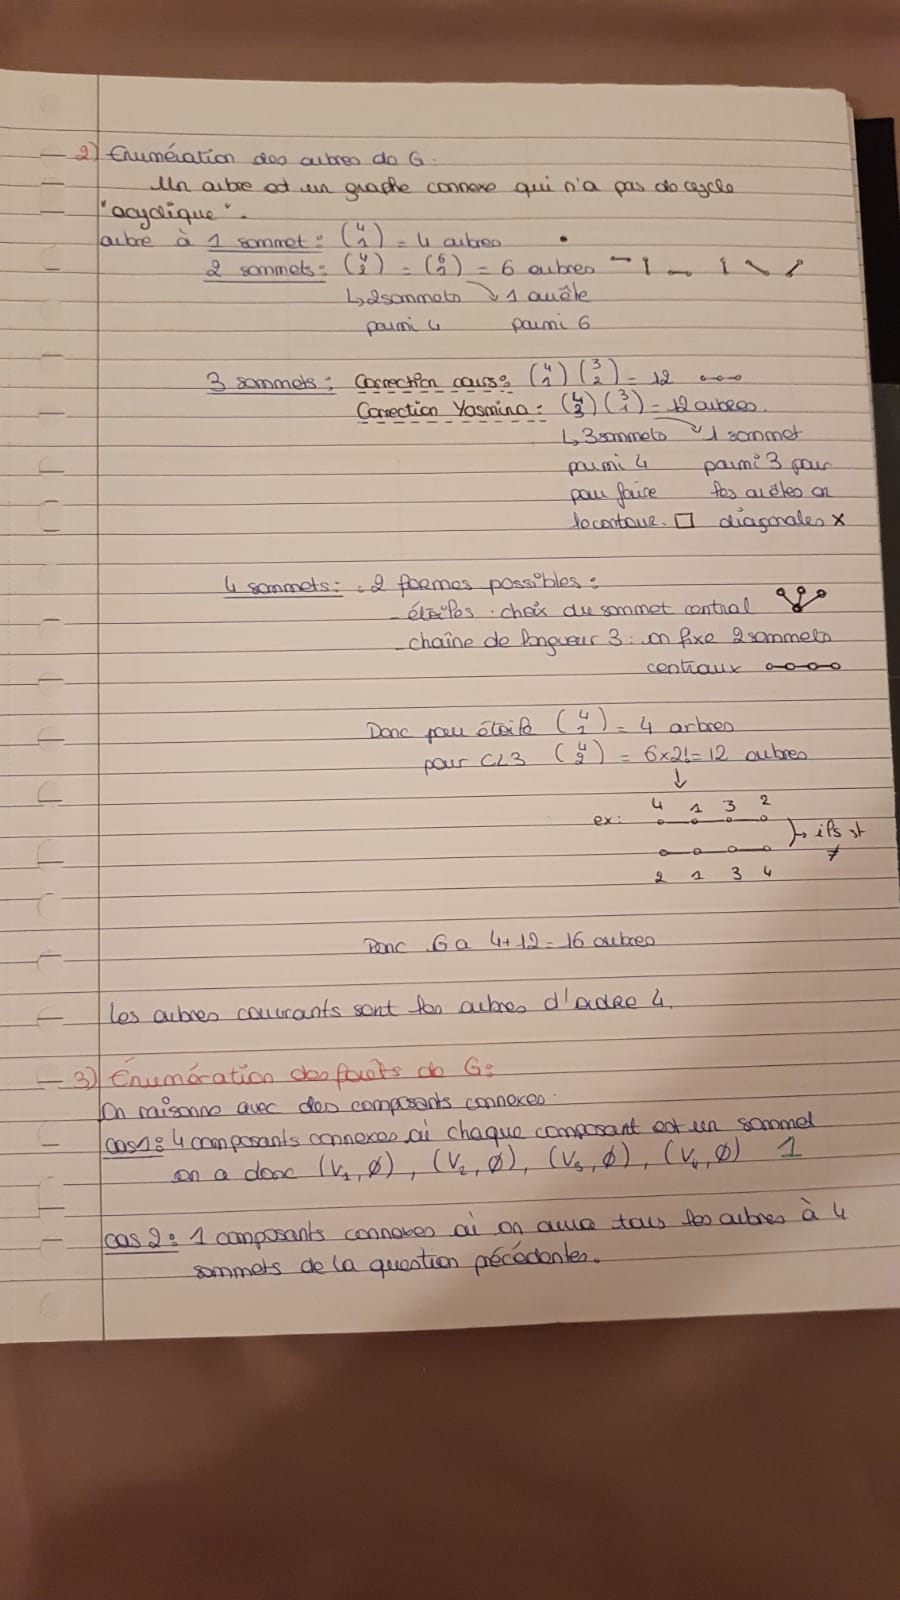 2) Enumération des arbres de G.
Un arbre est un graphe connexe qui n'a pas de cycle
"acyclique".
arbre à 1 sommet : (4 1) = 4 arbres
2 sommets : (4 2) = (6 1) = 6 arbres
↳ 2 sommets ↘ 1 arête
parmi 4 parmi 6
3 sommets : Correction cours : (4 1) (3 2) = 12
Correction Yasmina : (4 3) (3 1) = 12 arbres.
↳ 3 sommets ↘ 1 sommet
parmi 4 parmi 3 pour
pour faire les arêtes en
le contour. □ diagonales ×
4 sommets : . 2 formes possibles :
- étoiles : choix du sommet central
- chaîne de longueur 3 : on fixe 2 sommets
centraux
Donc pour étoile (4 1) = 4 arbres
pour CL3 (4 2) = 6×2! = 12 arbres
↓
4 1 3 2
ex :
ils st
≠
2 1 3 4
Donc G a 4+12 = 16 arbres
Les arbres couvrants sont les arbres d'ordre 4.
3) Énumération des forêts de G :
On raisonne avec des composants connexes.
cas 1 : 4 composants connexes où chaque composant est un sommet
on a donc (V₁, ∅), (V₂, ∅), (V₃, ∅), (V₄, ∅) 1
cas 2 : 1 composants connexes où on aura tous les arbres à 4
sommets de la question précédentes.